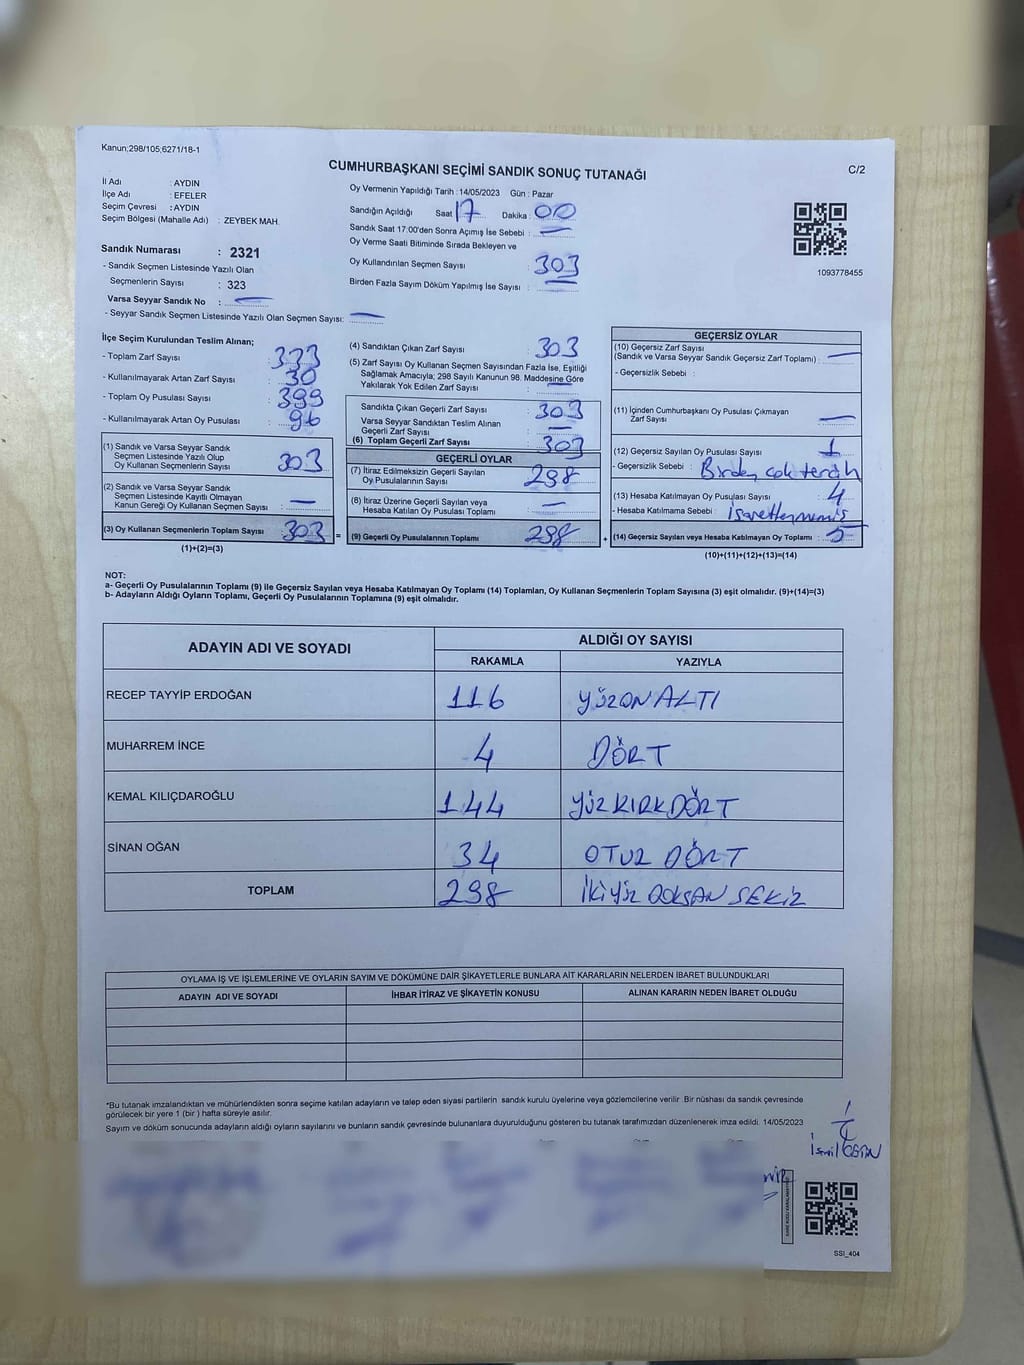 Kanun;298/105,6271/18-1
CUMHURBAŞKANI SEÇİMİ SANDIK SONUÇ TUTANAĞI
C/2
İl Adı : AYDIN
İlçe Adı : EFELER
Seçim Çevresi : AYDIN
Seçim Bölgesi (Mahalle Adı) : ZEYBEK MAH.
Sandık Numarası : 2321
- Sandık Seçmen Listesinde Yazılı Olan
Seçmenlerin Sayısı : 323
Varsa Seyyar Sandık No : —
- Seyyar Sandık Seçmen Listesinde Yazılı Olan Seçmen Sayısı: —
Oy Vermenin Yapıldığı Tarih : 14/05/2023 Gün : Pazar
Sandığın Açıldığı Saat 17 Dakika : 00
Sandık Saat 17:00'den Sonra Açımış İse Sebebi : —
Oy Verme Saati Bitiminde Sırada Bekleyen ve
Oy Kullandırılan Seçmen Sayısı : 303
Birden Fazla Sayım Döküm Yapılmış İse Sayısı : —
1093778455
İlçe Seçim Kurulundan Teslim Alınan;
- Toplam Zarf Sayısı : 333
- Kullanılmayarak Artan Zarf Sayısı : 30
- Toplam Oy Pusulası Sayısı : 399
- Kullanılmayarak Artan Oy Pusulası : 96
(1) Sandık ve Varsa Seyyar Sandık
Seçmen Listesinde Yazılı Olup
Oy Kullanan Seçmenlerin Sayısı : 303
(2) Sandık ve Varsa Seyyar Sandık
Seçmen Listesinde Kayıtlı Olmayan
Kanun Gereği Oy Kullanan Seçmen Sayısı : —
(3) Oy Kullanan Seçmenlerin Toplam Sayısı : 303
(1)+(2)=(3)
=
(4) Sandıktan Çıkan Zarf Sayısı : 303
(5) Zarf Sayısı Oy Kullanan Seçmen Sayısından Fazla İse, Eşitliği
Sağlamak Amacıyla; 298 Sayılı Kanunun 98. Maddesine Göre
Yakılarak Yok Edilen Zarf Sayısı : —
Sandıkta Çıkan Geçerli Zarf Sayısı : 303
Varsa Seyyar Sandıktan Teslim Alınan
Geçerli Zarf Sayısı : —
(6) Toplam Geçerli Zarf Sayısı : 303
GEÇERLİ OYLAR
(7) İtiraz Edilmeksizin Geçerli Sayılan
Oy Pusulalarının Sayısı : 298
(8) İtiraz Üzerine Geçerli Sayılan veya
Hesaba Katılan Oy Pusulası Toplamı : —
(9) Geçerli Oy Pusulalarının Toplamı : 298
+
GEÇERSİZ OYLAR
(10) Geçersiz Zarf Sayısı
(Sandık ve Varsa Seyyar Sandık Geçersiz Zarf Toplamı) : —
- Geçersizlik Sebebi :
(11) İçinden Cumhurbaşkanı Oy Pusulası Çıkmayan
Zarf Sayısı : —
(12) Geçersiz Sayılan Oy Pusulası Sayısı : 1
- Geçersizlik Sebebi : Birden çok tercih
(13) Hesaba Katılmayan Oy Pusulası Sayısı : 4
- Hesaba Katılmama Sebebi : İşaretlenmemiş
(14) Geçersiz Sayılan veya Hesaba Katılmayan Oy Toplamı : 5
(10)+(11)+(12)+(13)=(14)
NOT:
a- Geçerli Oy Pusulalarının Toplamı (9) ile Geçersiz Sayılan veya Hesaba Katılmayan Oy Toplamı (14) Toplamları, Oy Kullanan Seçmenlerin Toplam Sayısına (3) eşit olmalıdır. (9)+(14)=(3)
b- Adayların Aldığı Oyların Toplamı, Geçerli Oy Pusulalarının Toplamına (9) eşit olmalıdır.
ADAYIN ADI VE SOYADI
ALDIĞI OY SAYISI
RAKAMLA YAZIYLA
RECEP TAYYİP ERDOĞAN 116 YÜZONALTI
MUHARREM İNCE 4 DÖRT
KEMAL KILIÇDAROĞLU 144 YÜZKIRKDÖRT
SİNAN OĞAN 34 OTUZ DÖRT
TOPLAM 298 İkiYüz DOKSAN SEKİZ
OYLAMA İŞ VE İŞLEMLERİNE VE OYLARIN SAYIM VE DÖKÜMÜNE DAİR ŞİKAYETLERLE BUNLARA AİT KARARLARIN NELERDEN İBARET BULUNDUKLARI
ADAYIN ADI VE SOYADI İHBAR İTİRAZ VE ŞİKAYETİN KONUSU ALINAN KARARIN NEDEN İBARET OLDUĞU
*Bu tutanak imzalandıktan ve mühürlendikten sonra seçime katılan adayların ve talep eden siyasi partilerin sandık kurulu üyelerine veya gözlemcilerine verilir. Bir nüshası da sandık çevresinde
görülecek bir yere 1 (bir ) hafta süreyle asılır.
Sayım ve döküm sonucunda adayların aldığı oyların sayılarını ve bunların sandık çevresinde bulunanlara duyurulduğunu gösteren bu tutanak tarafımızdan düzenlenerek imza edildi. 14/05/2023
SSİ_404